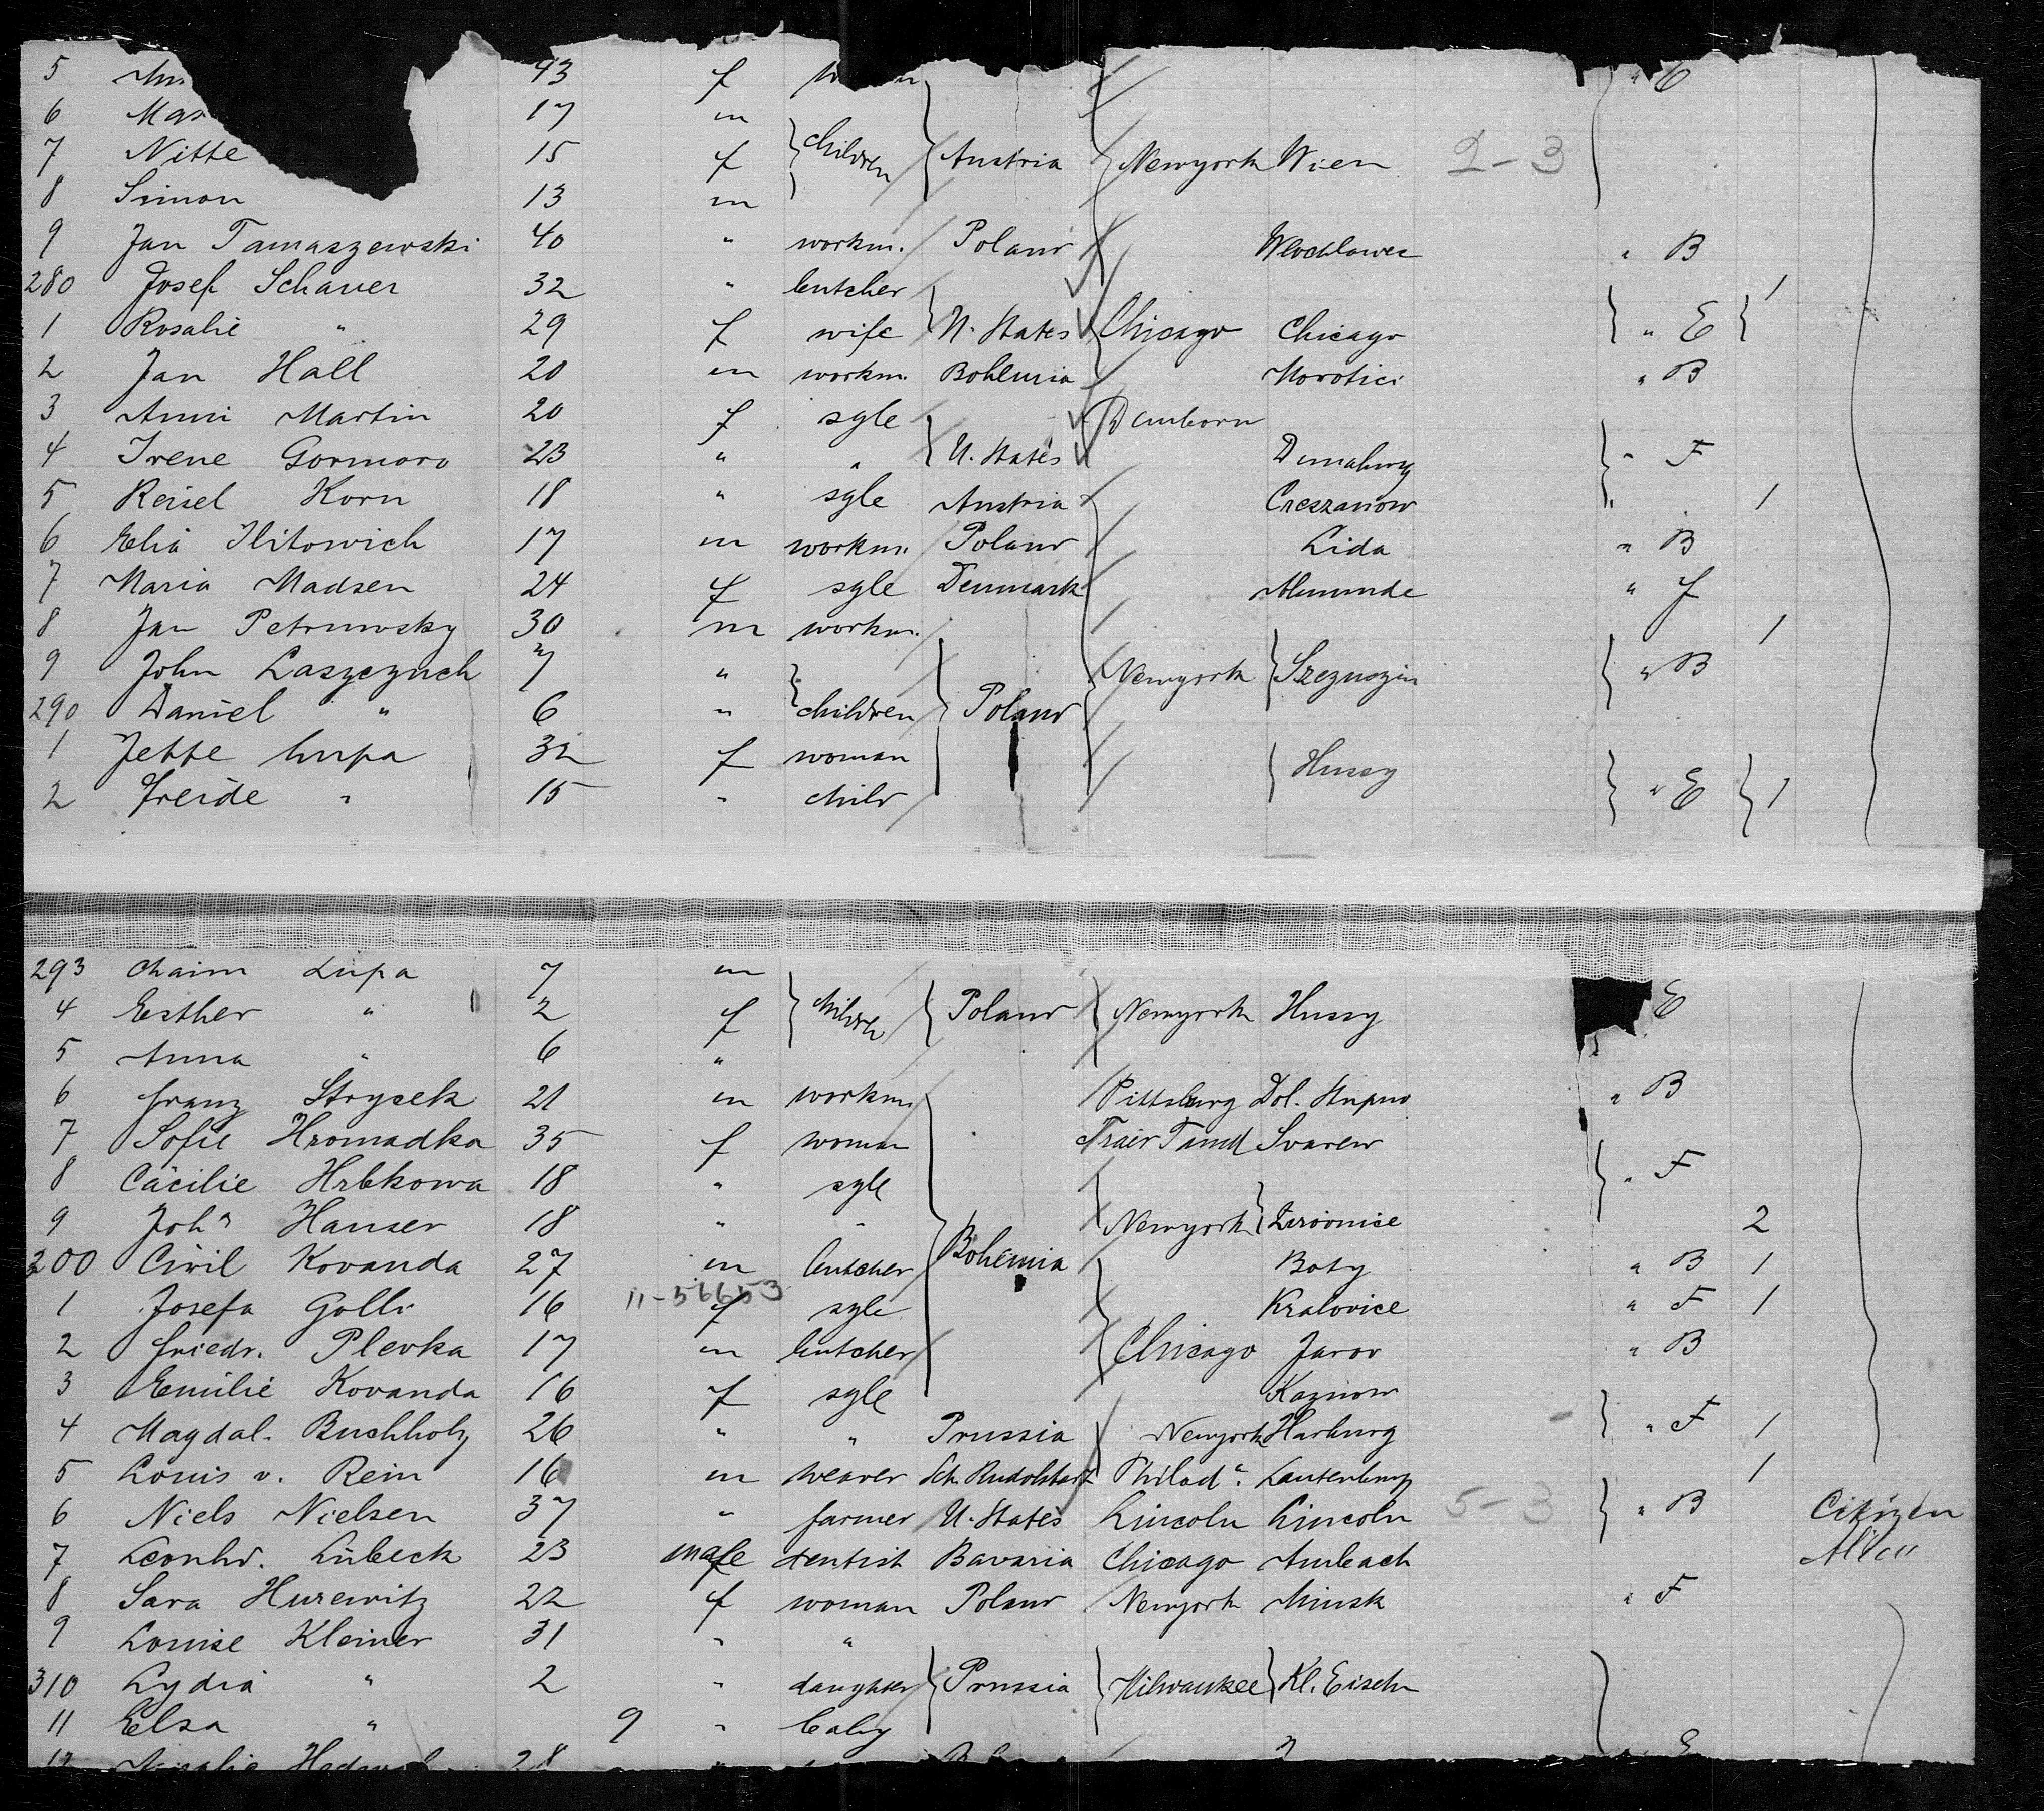 5 43 f " E
6 Mas 17 m
7 Nitte 15 f children Austria Newyork Wien 2-3
8 Simon 13 m
9 Jan Tamaszewski 40 " workm. Poland Wloclawec " B
280 Josef Schauer 32 " butcher 1
1 Rosalie " 29 f wife U. States Chicago Chicago " E
2 Jan Hall 20 m workm. Bohemia Morotici " B
3 Anni Martin 20 f sgle
4 Irene Gormoro 23 " " U. States Dunaburg " F
5 Reisel Korn 18 " sgle Austria Creszanow " 1
6 Elia Ilitowich 17 m workm. Poland Lida " B
7 Maria Madsen 24 f sgle Denmark " f
8 Jan Petruwsky 30 m workm. 1
9 John Laszczuch 7 " Newyork Szczuszin " B
290 Daniel " 6 " children Poland
1 Jette Lupa 32 f woman Hussy
2 Freide " 15 " child " E 1
293 Chaim Lupa 7 m
4 Esther " 2 f children Poland Newyork Hussy E
5 Anna " 6 "
6 Franz Strysek 21 m workm. Pittsburg Dol. Stupno " B
7 Sofie Hromadka 35 f woman Svarew
8 Cäcilie Hrbkowa 18 " sgle " F
9 Joha Hauser 18 " " Newyork Zirovnice 2
200 Civil Kovanda 27 m butcher Bohemia Boty " B 1
11-56653
1 Josefa Golli 16 f sgle Kralovice " F 1
2 Friedr. Plevka 17 m butcher Chicago Jarov " B
3 Emilie Kovanda 16 f sgle Kaznow
4 Magdal. Buchholz 26 " " Prussia Newyork Harburg " F 1
5 Louis v. Rein 16 m weaver Sch. Rudolstadt Philada. Lautenburg 1
6 Niels Nielsen 37 " farmer U. States Lincoln Lincoln 5-3 " B Citizen
7 Leonhd. Lübeck 23 male dentist Bavaria Chicago Ansbach Alien
8 Sara Hurewitz 22 f woman Poland Newyork Minsk " F
9 Louise Kleiner 31 " "
310 Lydia " 2 " daughter Prussia Milwaukee Kl. Eisch
11 Elsa " 9 " baby
12 28 E